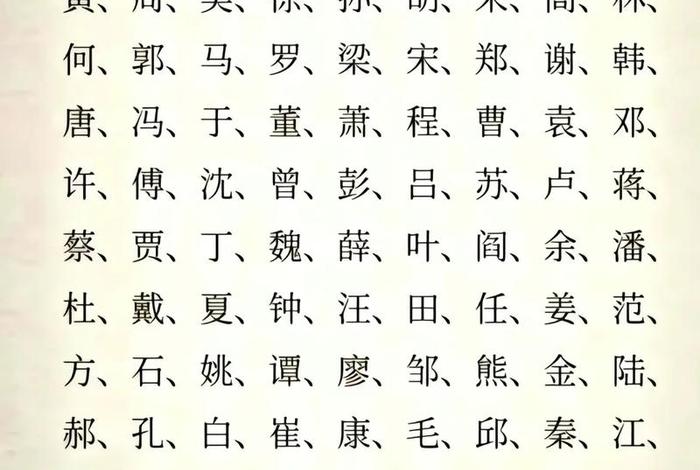 黄、周、吴、徐、孙、胡、朱、高、林、
何、郭、马、罗、梁、宋、郑、谢、韩、
唐、冯、于、董、萧、程、曹、袁、邓、
许、傅、沈、曾、彭、吕、苏、卢、蒋、
蔡、贾、丁、魏、薛、叶、阎、余、潘、
杜、戴、夏、钟、汪、田、任、姜、范、
方、石、姚、谭、廖、邹、熊、金、陆、
郝、孔、白、崔、康、毛、邱、秦、江、